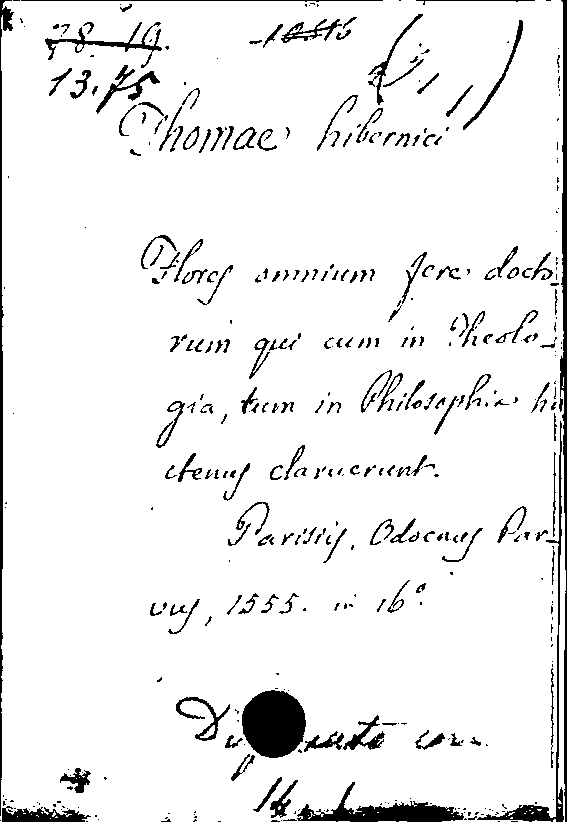 28-19. -10516
13.75
Thomae hibernici
Flores omnium fere docto-
rum qui cum in Theolo-
gia, tum in Philosophia ha
ctenus claruerunt.
Parisiis, Odoenus Par-
vus, 1555. in 16°